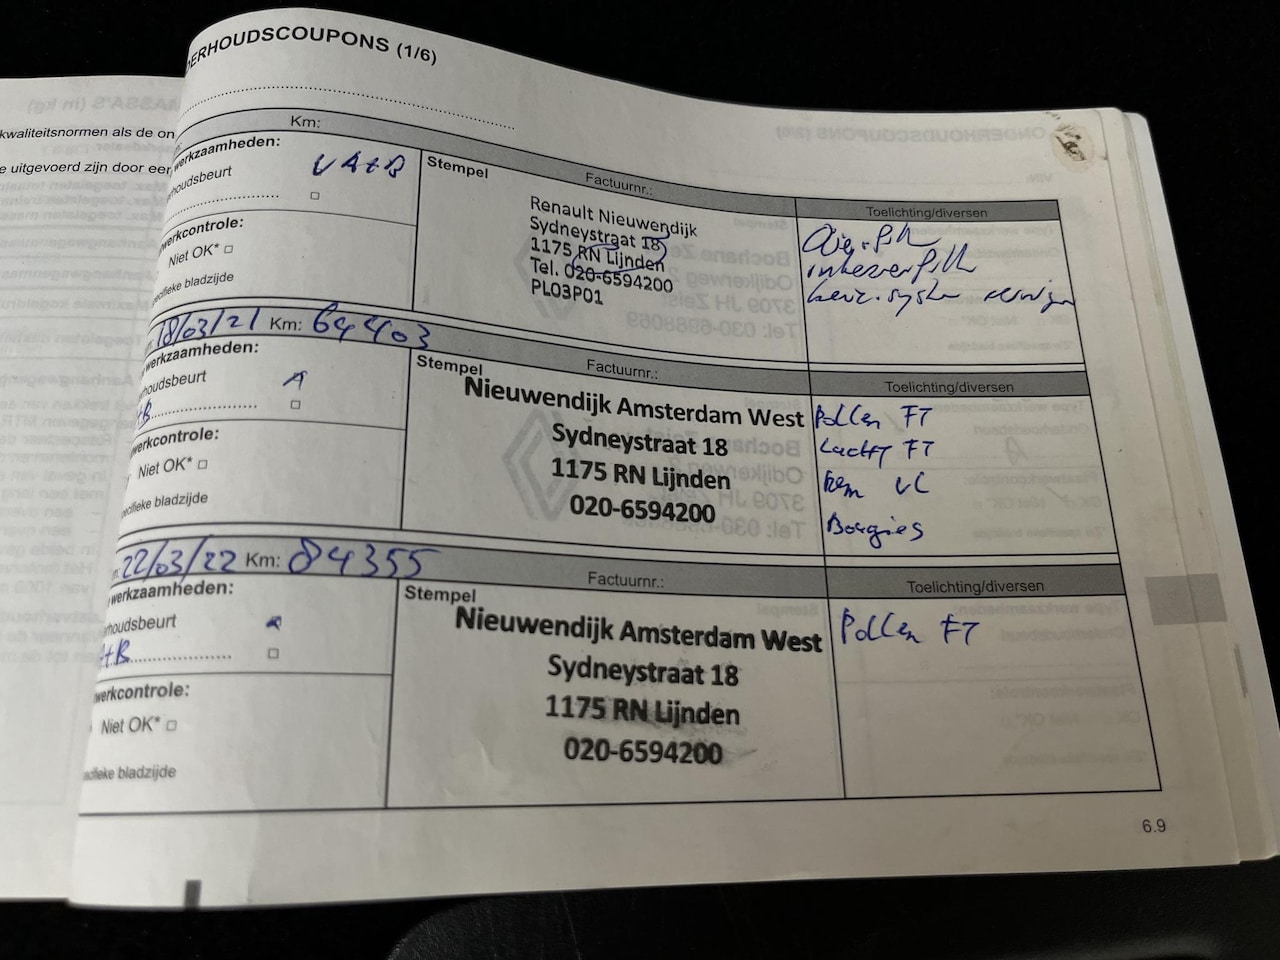 ERHOUDSCOUPONS (1/6)
kwaliteitsnormen als de on
e uitgevoerd zijn door eer
Km:
werkzaamheden:
houdsbeurt
V A+B
Stempel
Factuurnr.:
Renault Nieuwendijk
Sydneystraat 18
1175 RN Lijnden
Tel. 020-6594200
PL03P01
Toelichting/diversen
werkcontrole:
Niet OK*
ecifieke bladzijde
18/03/21 Km: 64403
werkzaamheden:
houdsbeurt
A
+B
Stempel
Factuurnr.:
Nieuwendijk Amsterdam West
Sydneystraat 18
1175 RN Lijnden
020-6594200
Toelichting/diversen
Pollen FT
Lucht FT
Rem VL
Bougies
werkcontrole:
Niet OK*
ecifieke bladzijde
22/03/22 Km: 84355
werkzaamheden:
rhoudsbeurt
A+B
Stempel
Factuurnr.:
Nieuwendijk Amsterdam West
Sydneystraat 18
1175 RN Lijnden
020-6594200
Toelichting/diversen
Pollen FT
werkcontrole:
Niet OK*
ecifieke bladzijde
6.9